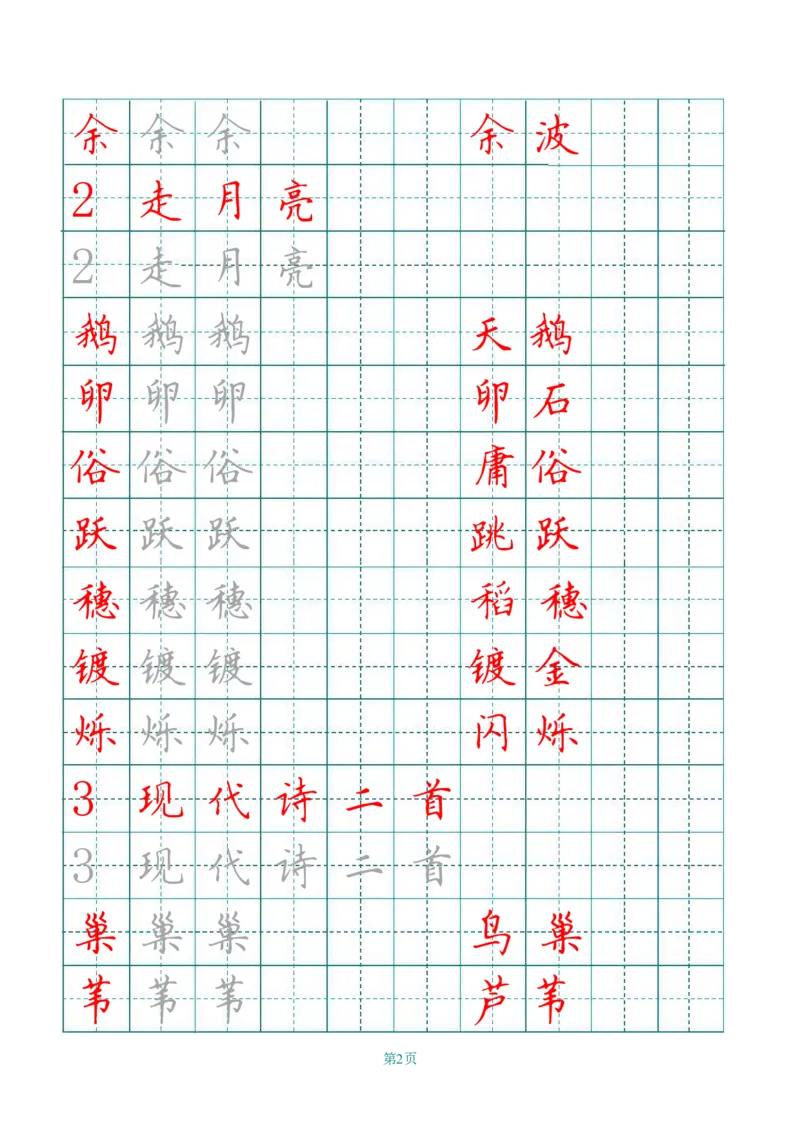 余 余 余 余 波
2 走 月 亮
2 走 月 亮
鹅 鹅 鹅 天 鹅
卵 卵 卵 卵 石
俗 俗 俗 庸 俗
跃 跃 跃 跳 跃
穗 穗 穗 稻 穗
镀 镀 镀 镀 金
烁 烁 烁 闪 烁
3 现 代 诗 二 首
3 现 代 诗 二 首
巢 巢 巢 鸟 巢
苇 苇 苇 芦 苇
第2页